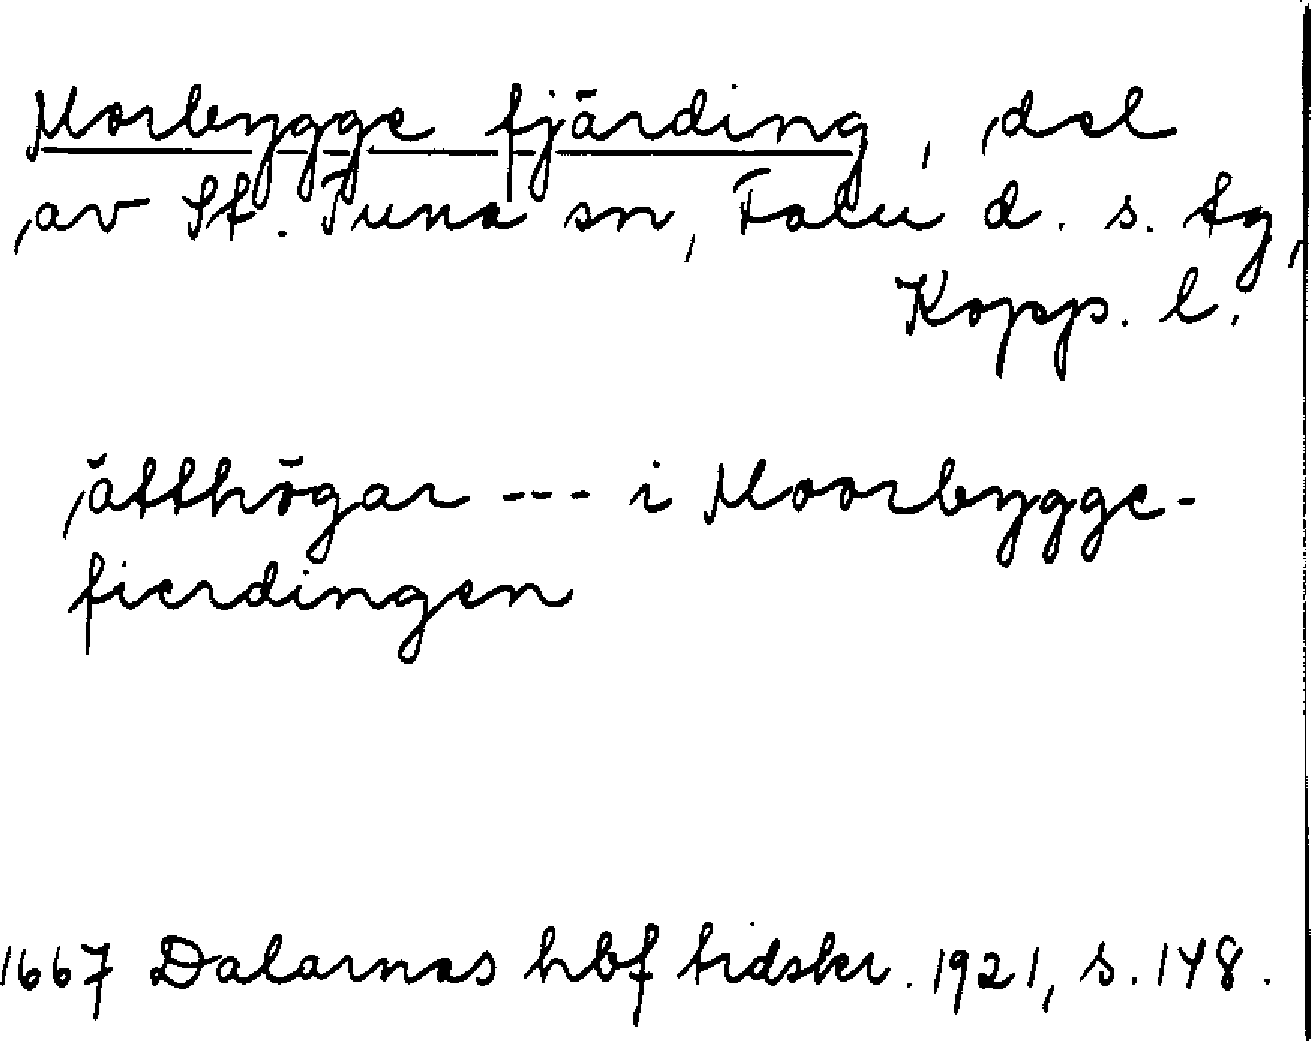 Morbygge fjärding, del
av St. Tuna sn, Falu d. s. tg,
Kopp. l.
ätthögar --- i Moorbygge-
fierdingen
1667 Dalarnas hbf tidskr. 1921, s. 148.